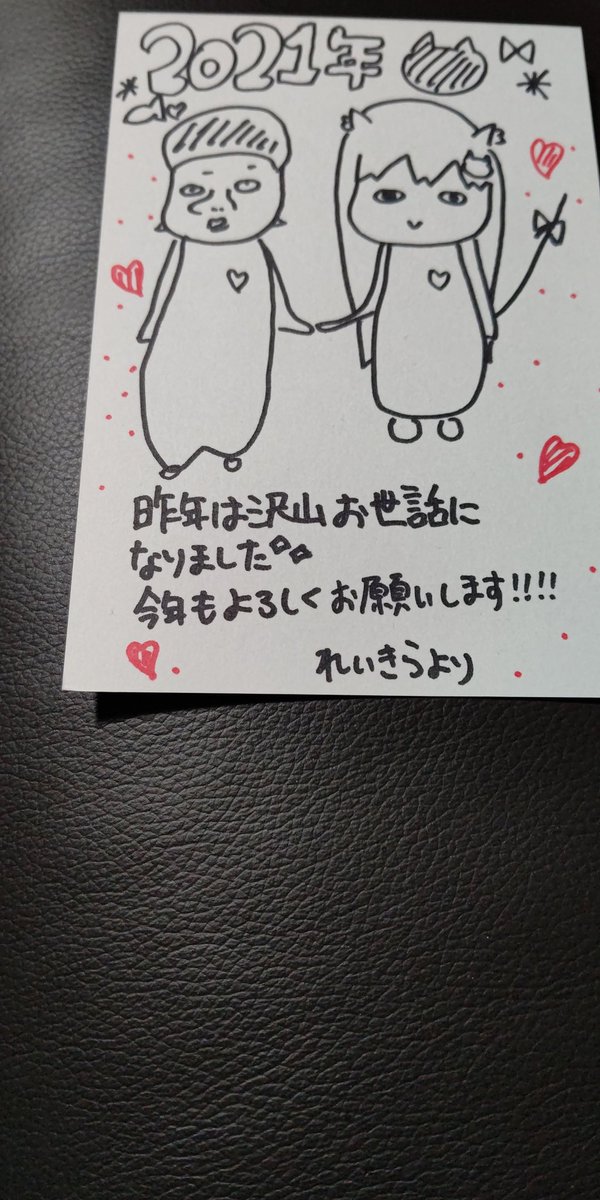 2021年
昨年は沢山お世話に
なりました
今年もよろしくお願いします!!!!
れいきらより